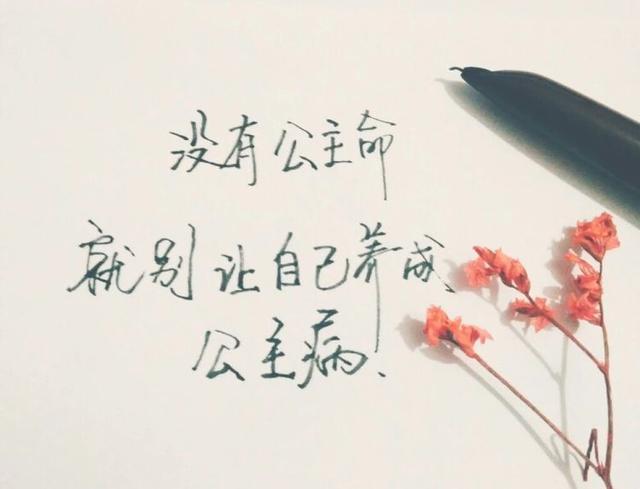 没有公主命
就别让自己养成
公主病、